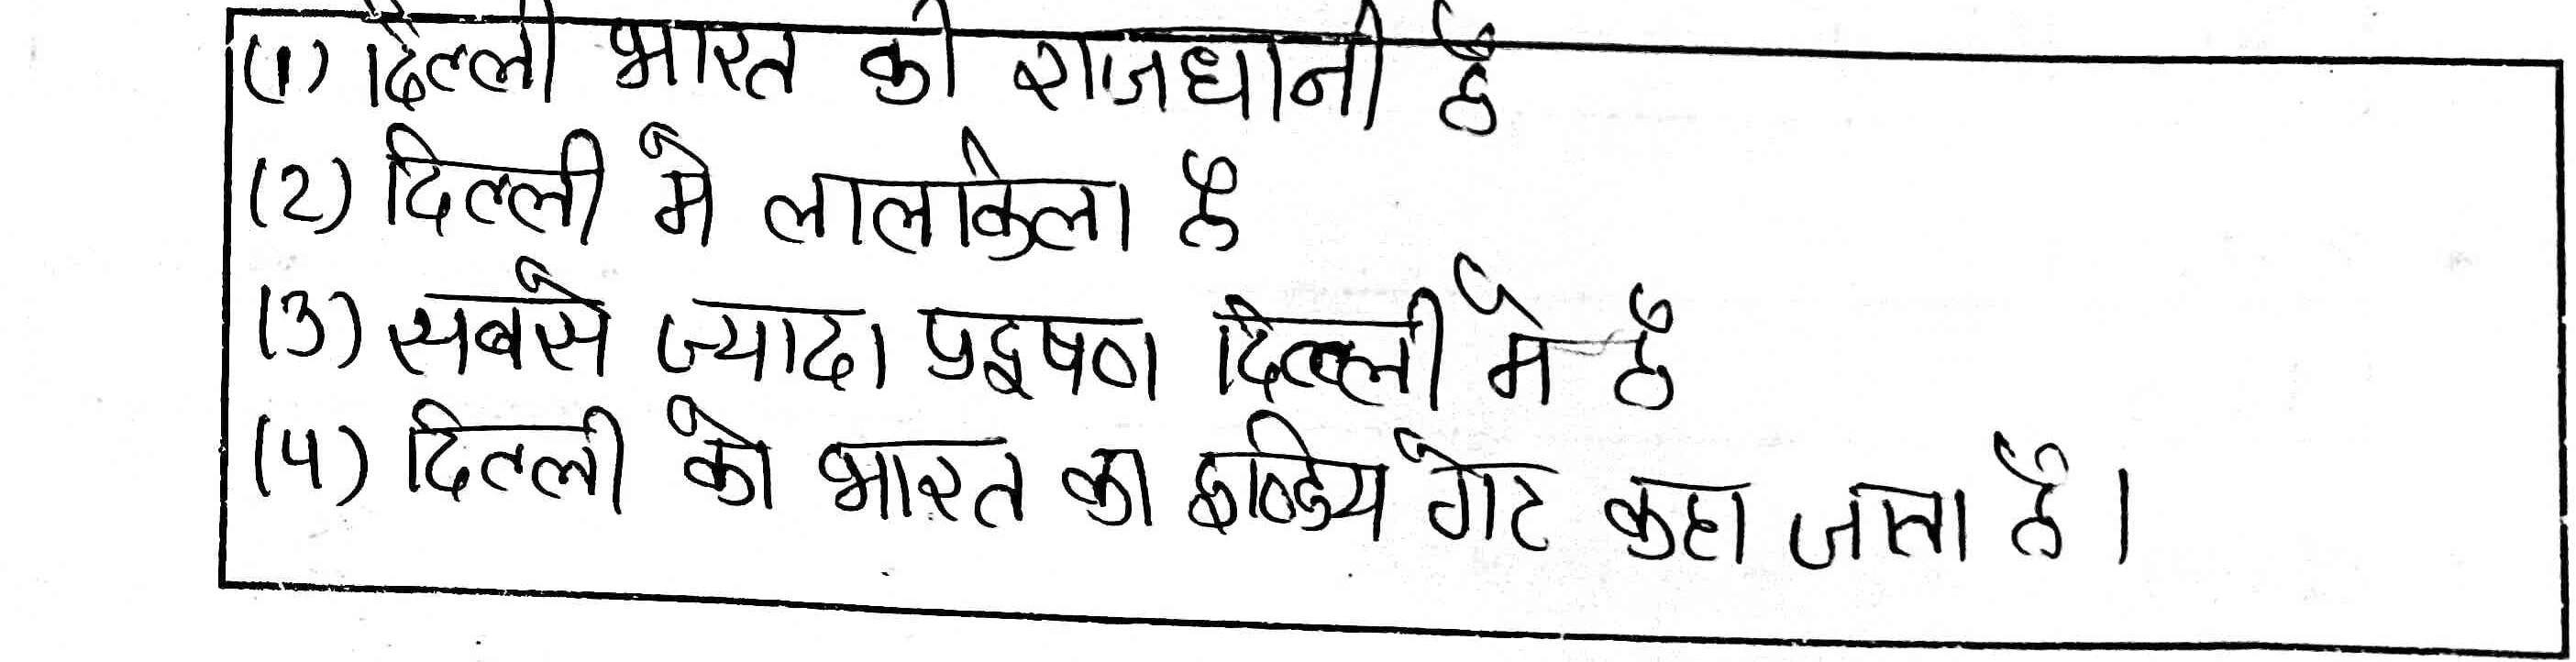 (1) दिल्ली भारत की राजधानी है
(2) दिल्ली मे लालकिला है
(3) सबसे ज्यादा प्रदूषण दिल्ली मे है
(4) दिल्ली को भारत का इण्डिय गेट कहा जाता है।